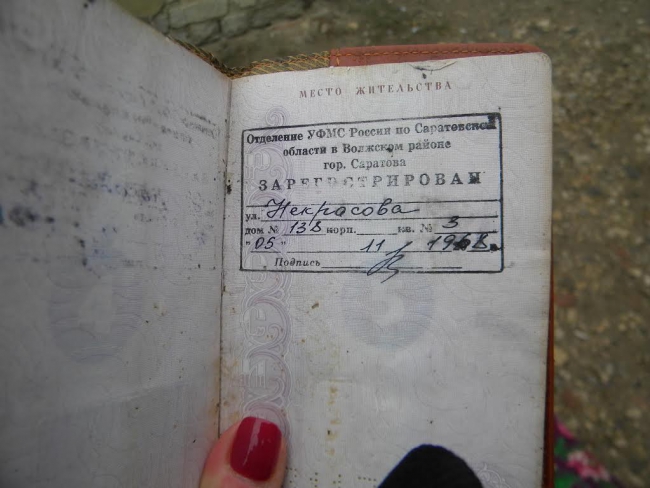 МЕСТО ЖИТЕЛЬСТВА
Отделение УФМС России по Саратовской
области в Волжском районе
гор. Саратова
ЗАРЕГИСТРИРОВАН
ул. Некрасова
дом № 13В корп. кв. № 3
"05" 11 1968.
Подпись